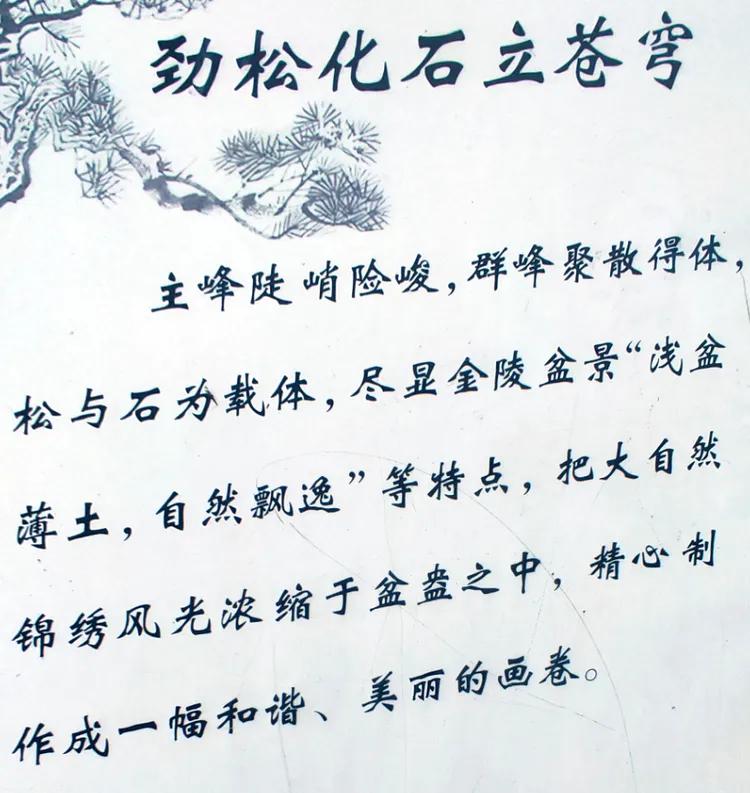 劲松化石立苍穹
主峰陡峭险峻，群峰聚散得体，
松与石为载体，尽显金陵盆景“浅盆
薄土，自然飘逸”等特点，把大自然
锦绣风光浓缩于盆盎之中，精心制
作成一幅和谐、美丽的画卷。